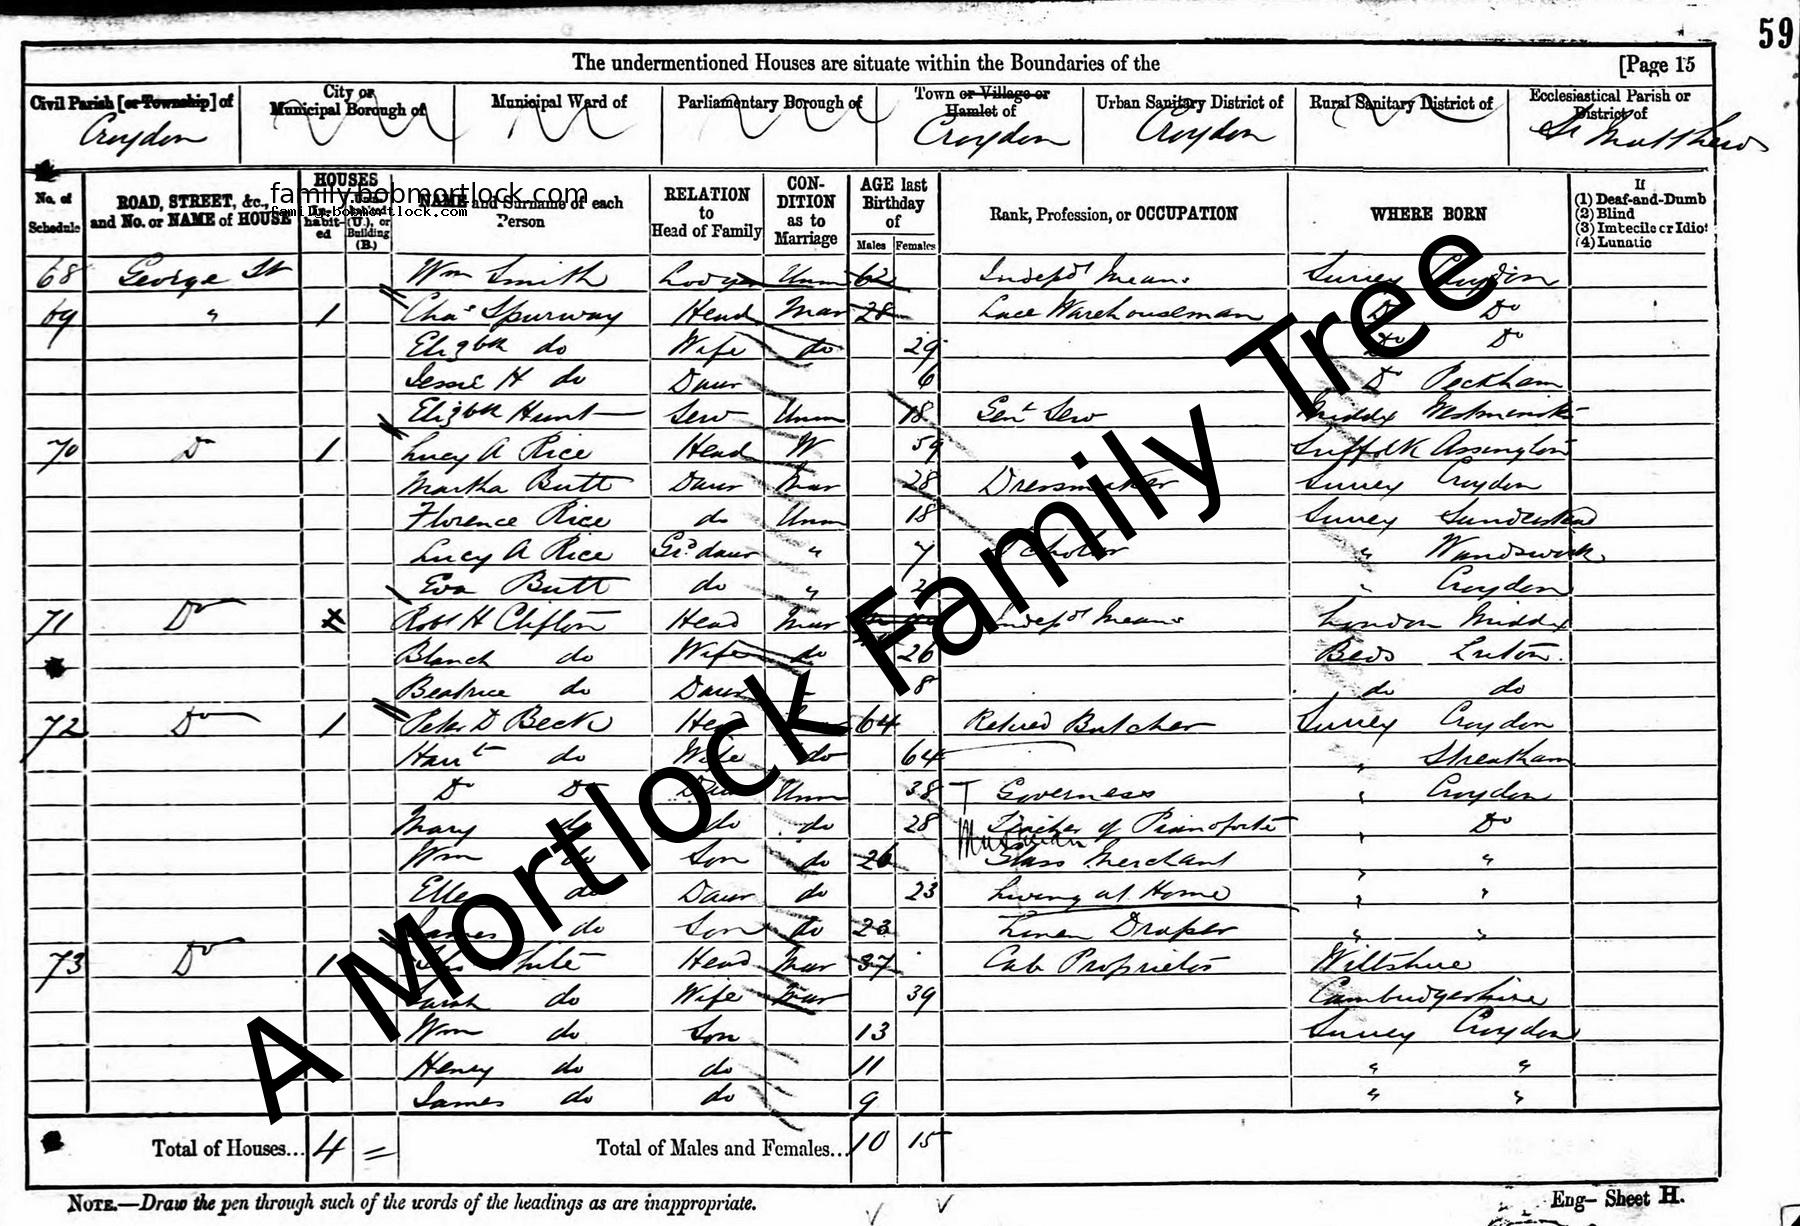 59
The undermentioned Houses are situate within the Boundaries of the [Page 15
Civil Parish [or Township] of City or Municipal Borough of Municipal Ward of Parliamentary Borough of Town or Village or Hamlet of Urban Sanitary District of Rural Sanitary District of Ecclesiastical Parish or District of
Croydon Croydon Croydon St Matthews
No. of Schedule ROAD, STREET, &c., and No. or NAME of HOUSE HOUSES Inhabited (U.), or Building (B.) NAME and Surname of each Person RELATION to Head of Family CONDITION as to Marriage AGE last Birthday of Males Females Rank, Profession, or OCCUPATION WHERE BORN If (1) Deaf-and-Dumb (2) Blind (3) Imbecile or Idiot (4) Lunatic
family.bobmortlock.com
family.bobmortlock.com
68 George St Wm Smith Lodger Unm 62 Indepdt Means Surrey Croydon
69 " 1 Chas Spurway Head Mar 28 Lace Warehouseman Do Do
Elizbth do Wife do 29 Do Do
Jessie H do Daur 6 Do Peckham
Elizbth Hunt Serv Unm 18 Genl Serv Middx Westminster
70 Do 1 Lucy A Rice Head W 59 Suffolk Assington
Martha Butt Daur Mar 28 Dressmaker Surrey Croydon
Florence Rice do Unm 18 Surrey Sanderstead
Lucy A Rice Grd daur " 7 Scholar " Wandsworth
Eva Butt do " 2 " Croydon
71 Do Robt H Clifton Head Mar Indepdt Means London Middx
Blanch do Wife do 26 Beds Luton
Beatrice do Daur 8 do do
72 Do 1 Peter D Beck Head 64 Retired Butcher Surrey Croydon
Harrt do Wife do 64 " Streatham
Do Do Daur Unm 38 Governess " Croydon
Mary do do do 28 Teacher of Pianoforte " Do
Musician
Wm do Son do 26 Glass Merchant " "
Ellen do Daur do 23 Living at Home " "
James do Son do 23 Linen Draper " "
73 Do 1 White Head Mar 37 Cab Proprietor Wiltshire
Sarah do Wife Mar 39 Cambridgeshire
Wm do Son 13 Surrey Croydon
Henry do do 11 " "
James do do 9 " "
Total of Houses... 4 = Total of Males and Females... 10 15
NOTE.—Draw the pen through such of the words of the headings as are inappropriate. Eng- Sheet H.
A Mortlock Family Tree